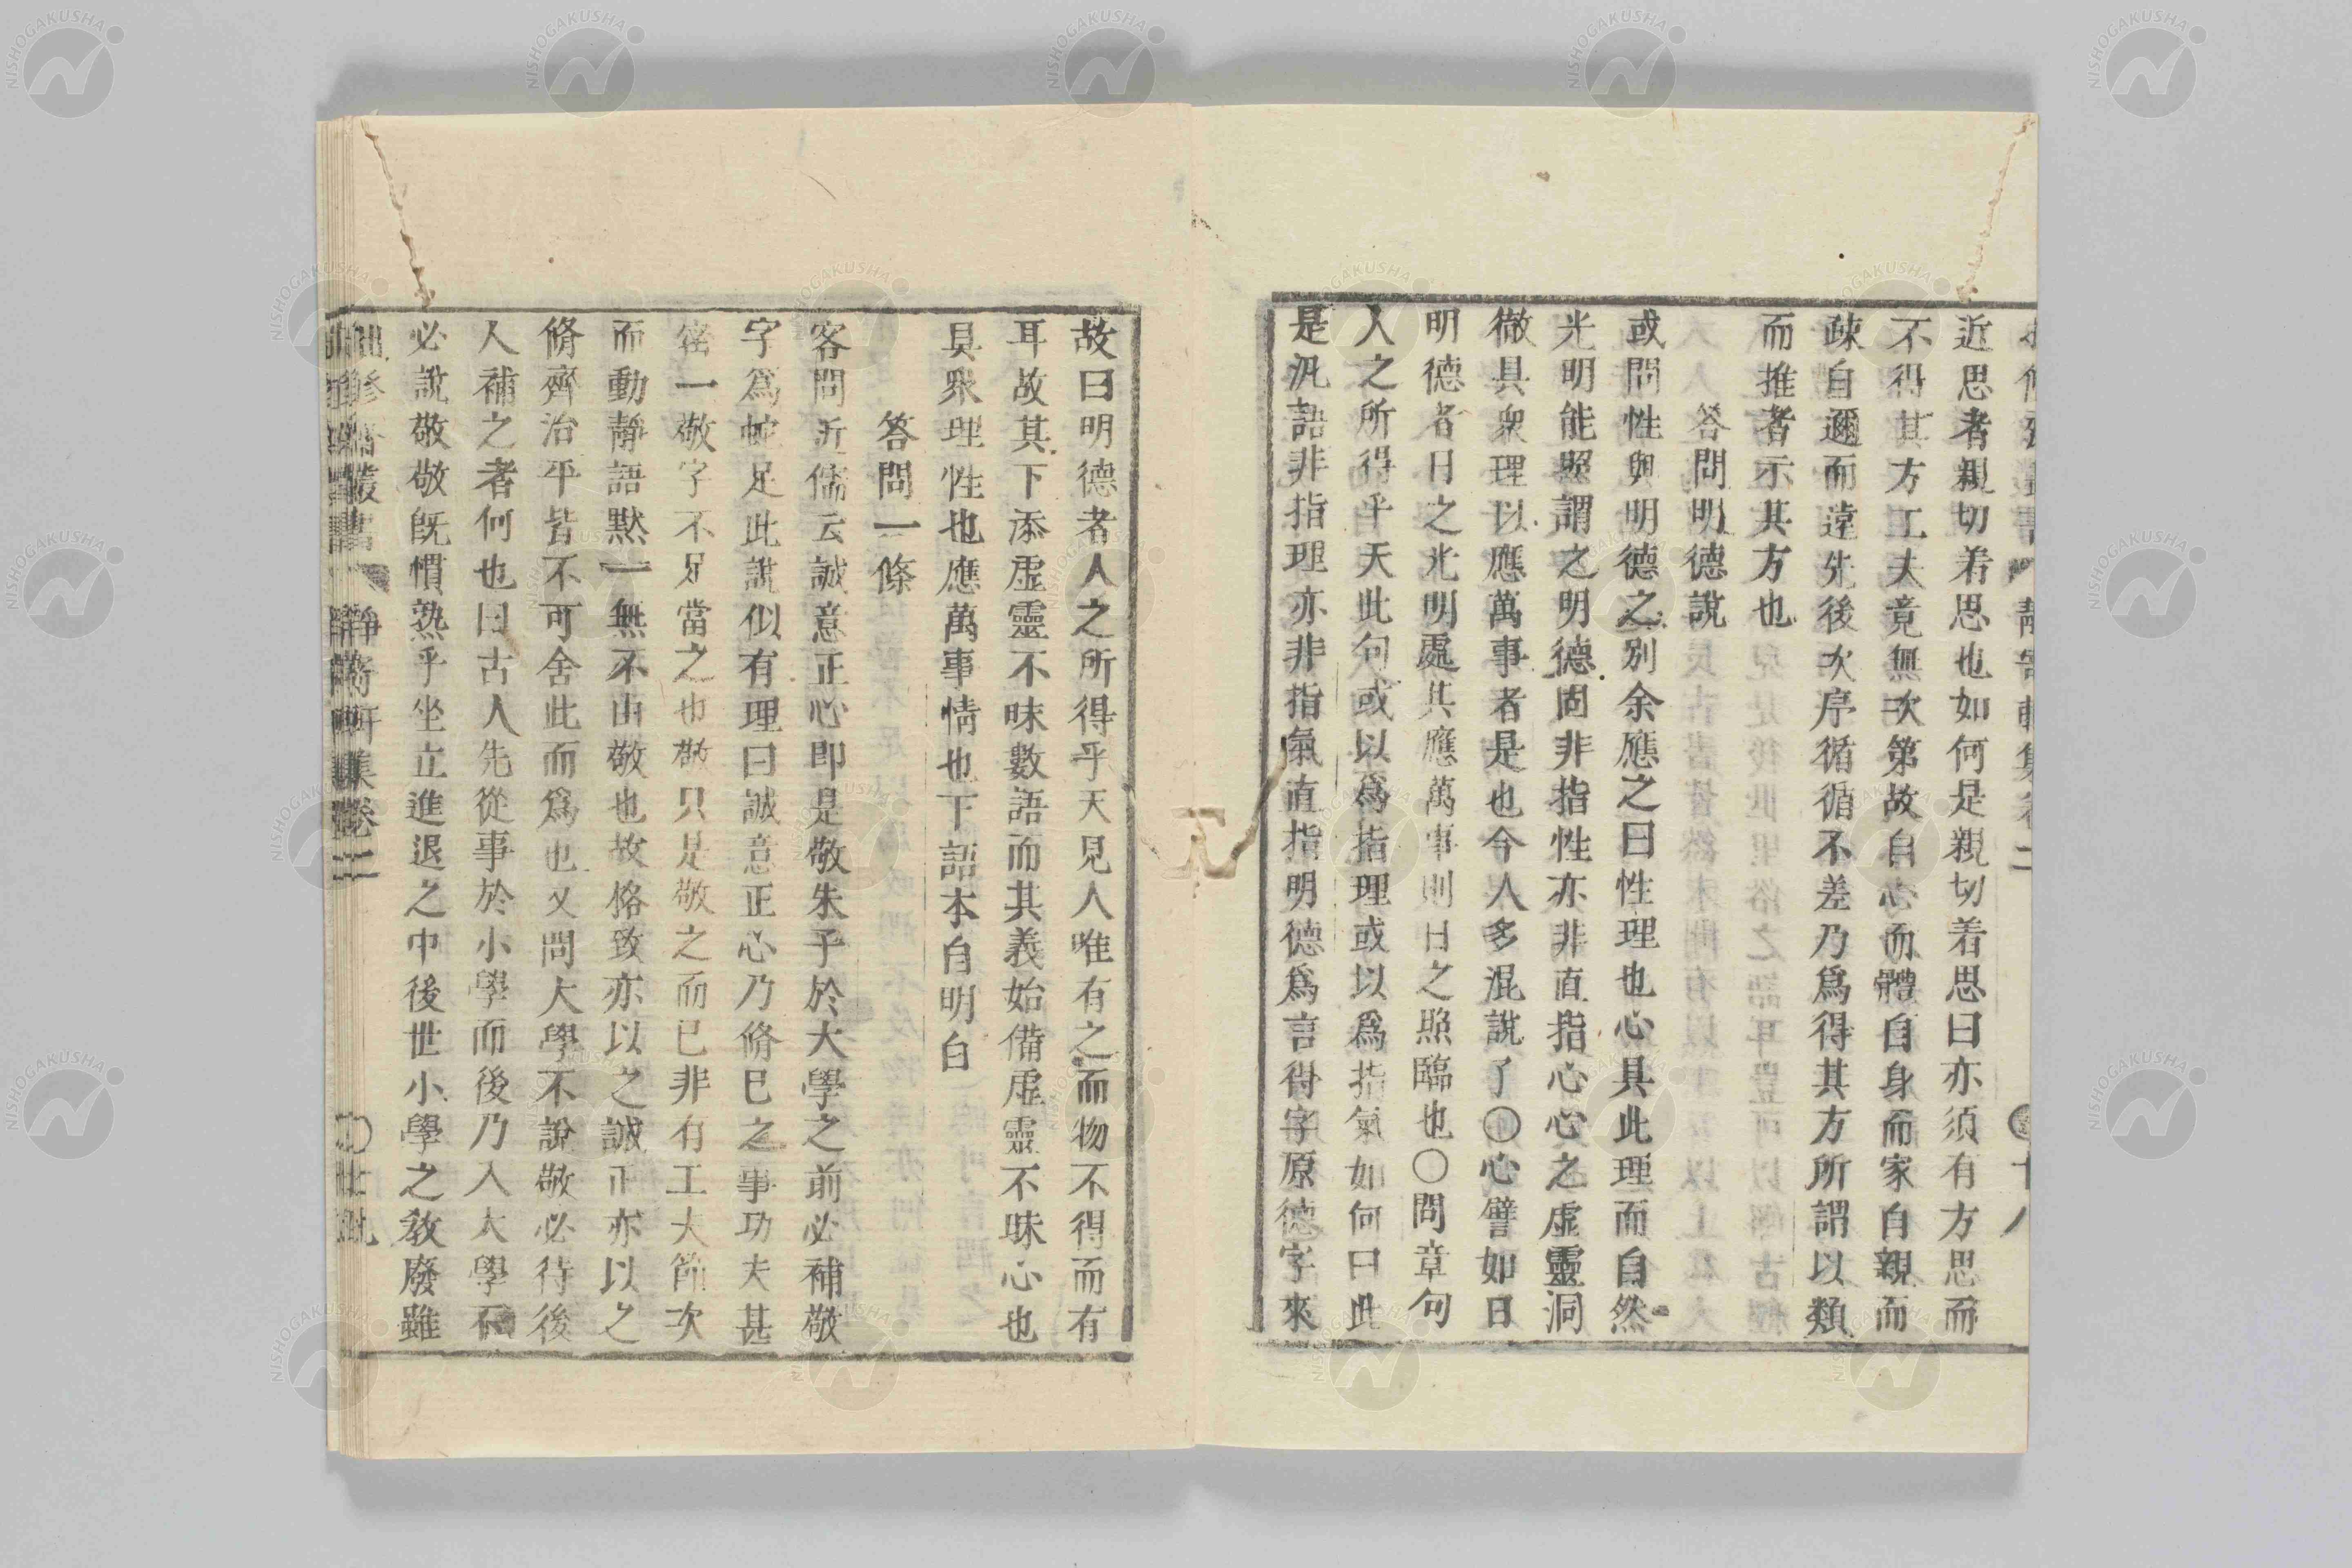 近思者親切着思也如何是親切着思曰亦須有方思而
不得其方工夫竟無次第故自心而體自身而家自親而
疎自邇而遠先後次序循循不差乃爲得其方所謂以類
而推者示其方也
答問明德說
或問性與明德之別余應之曰性理也心具此理而自然
光明能照謂之明德固非指性亦非直指心心之虛靈洞
徹具衆理以應萬事者是也今人多混說了〇心譬如日
明德者日之光明處其應萬事則日之照臨也〇問章句
人之所得乎天此句或以爲指理或以爲指氣如何曰此
是汎語非指理亦非指氣直指明德爲言得字原德字來
故曰明德者人之所得乎天見人唯有之而物不得而有
耳故其下添虛靈不昧數語而其義始備虛靈不昧心也
具衆理性也應萬事情也下語本自明白
答問一條
客問近儒云誠意正心即是敬朱子於大學之前必補敬
字爲蛇足此說似有理曰誠意正心乃脩己之事功夫甚
密一敬字不足當之也敬只是敬之而已非有工夫節次
而動靜語默一無不由敬也故格致亦以之誠正亦以之
脩齊治平皆不可舍此而爲也又問大學不說敬必待後
人補之者何也曰古人先從事於小學而後乃入大學不
必說敬敬既慣熟乎坐立進退之中後世小學之教廢雖